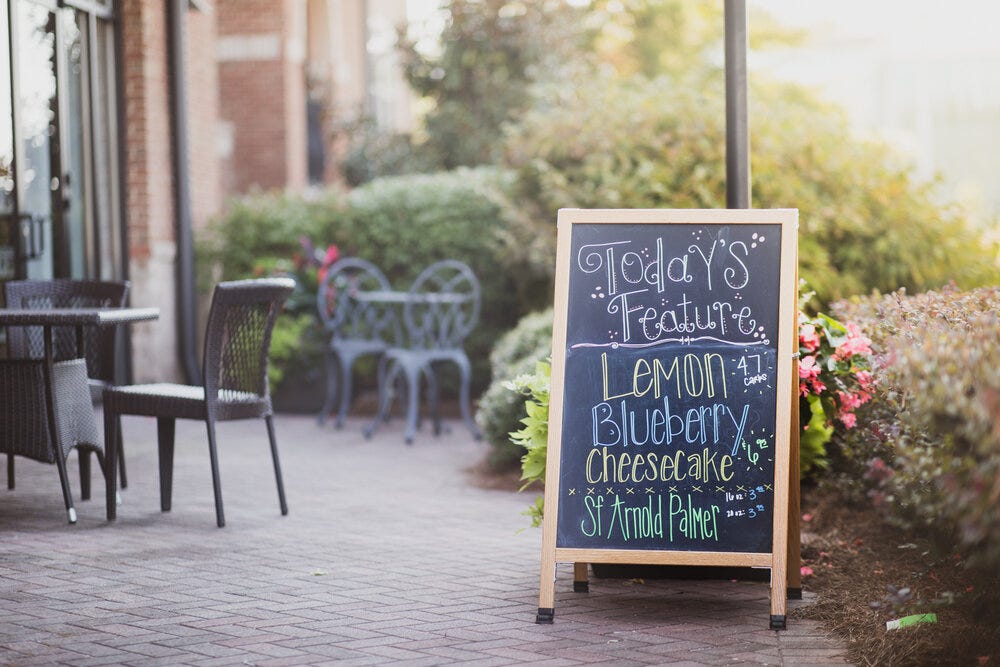 Today's
Feature
Lemon 47 carbs
Blueberry
Cheesecake $6
Sf Arnold Palmer 16 oz: 3
20 oz: 3